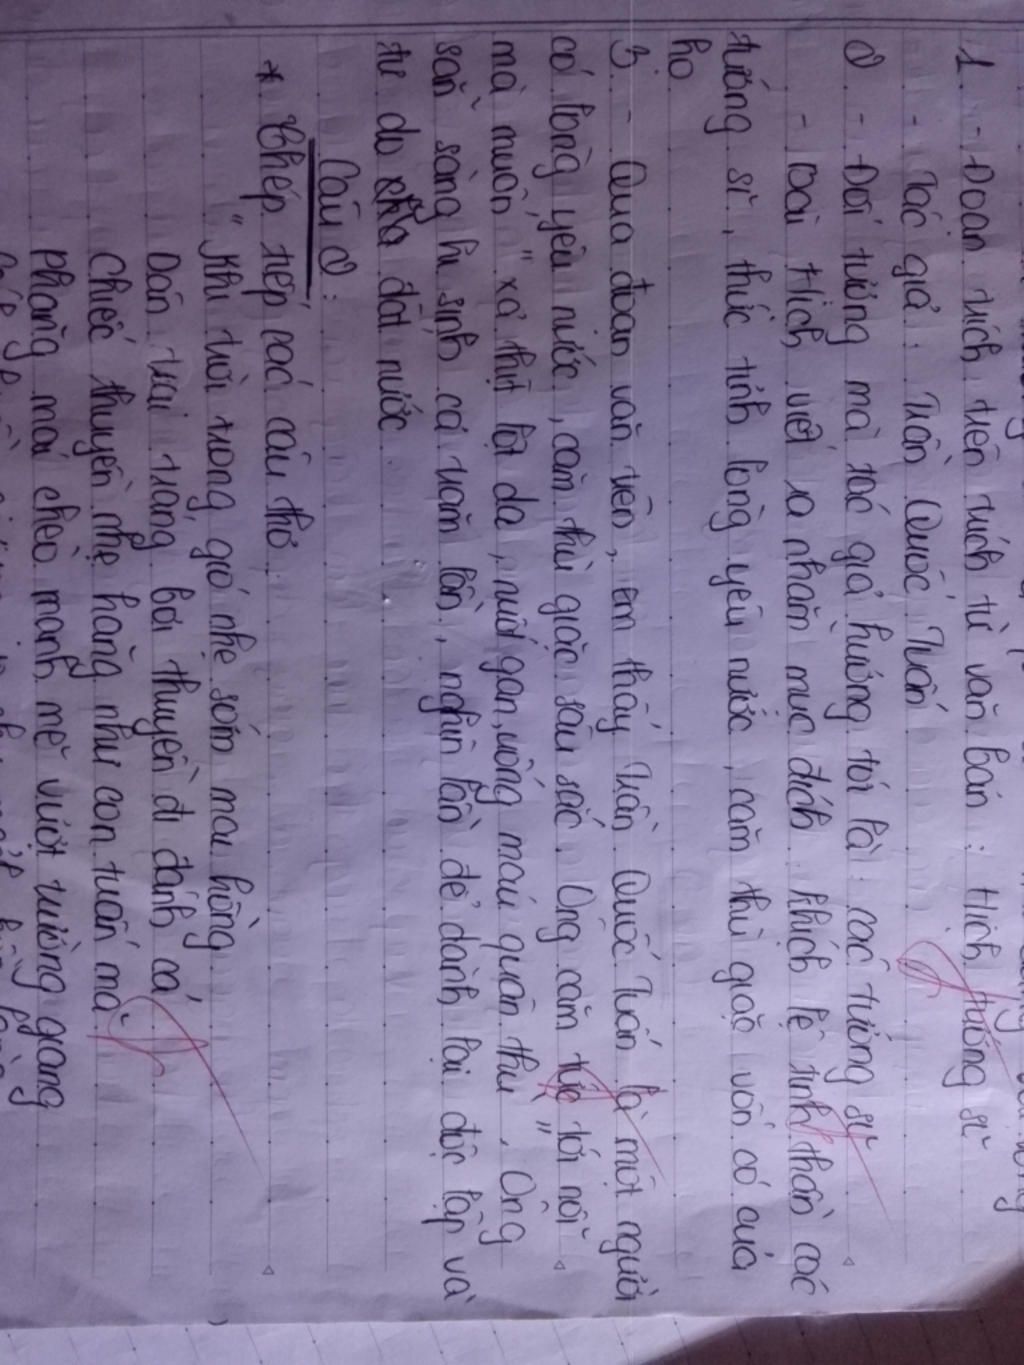 1. - Đoạn trích trên trích từ văn bản : Hịch tướng sĩ
- Tác giả : Trần Quốc Tuấn
2 - Đối tượng mà tác giả hướng tới là : các tướng sĩ
- Bài Hịch viết ra nhằm mục đích khích lệ tinh thần các
tướng sĩ, thức tỉnh lòng yêu nước, căm thù giặc vốn có của
họ
3. - Qua đoạn văn trên, em thấy Trần Quốc Tuấn là một người
có lòng yêu nước, căm thù giặc sâu sắc. Ông căm tức tới nỗi
mà muốn " xả thịt lột da, nuốt gan, uống máu quân thù ". Ông
sẵn sàng hi sinh cả trăm lần, nghìn lần để dành lại độc lập và
tự do của đất nước.
Câu 2 :
* Chép tiếp các câu thơ
" Khi trời trong, gió nhẹ sớm mai hồng
Dân trai tráng bơi thuyền đi đánh cá
Chiếc thuyền nhẹ hăng như con tuấn mã
Phăng mái chèo mạnh mẽ vượt trường giang